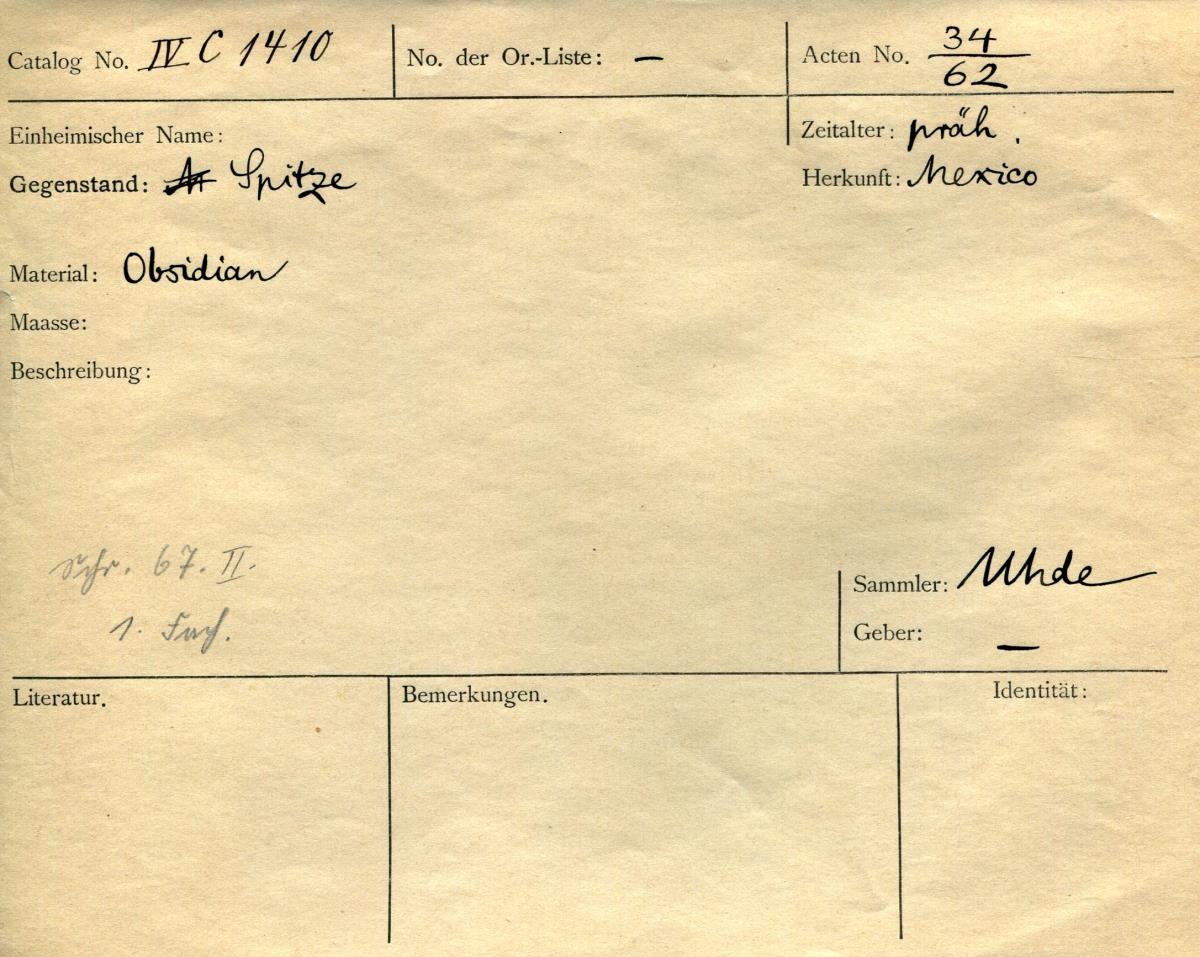 Catalog No. IV C 1410 No. der Or.-Liste: — Acten No. 34/62
Einheimischer Name: Zeitalter: präh.
Gegenstand: Spitze Herkunft: Mexico
Material: Obsidian
Maasse:
Beschreibung:
Schr. 67. II.
1. Fach.
Sammler: Uhde
Geber: —
Literatur. Bemerkungen. Identität: